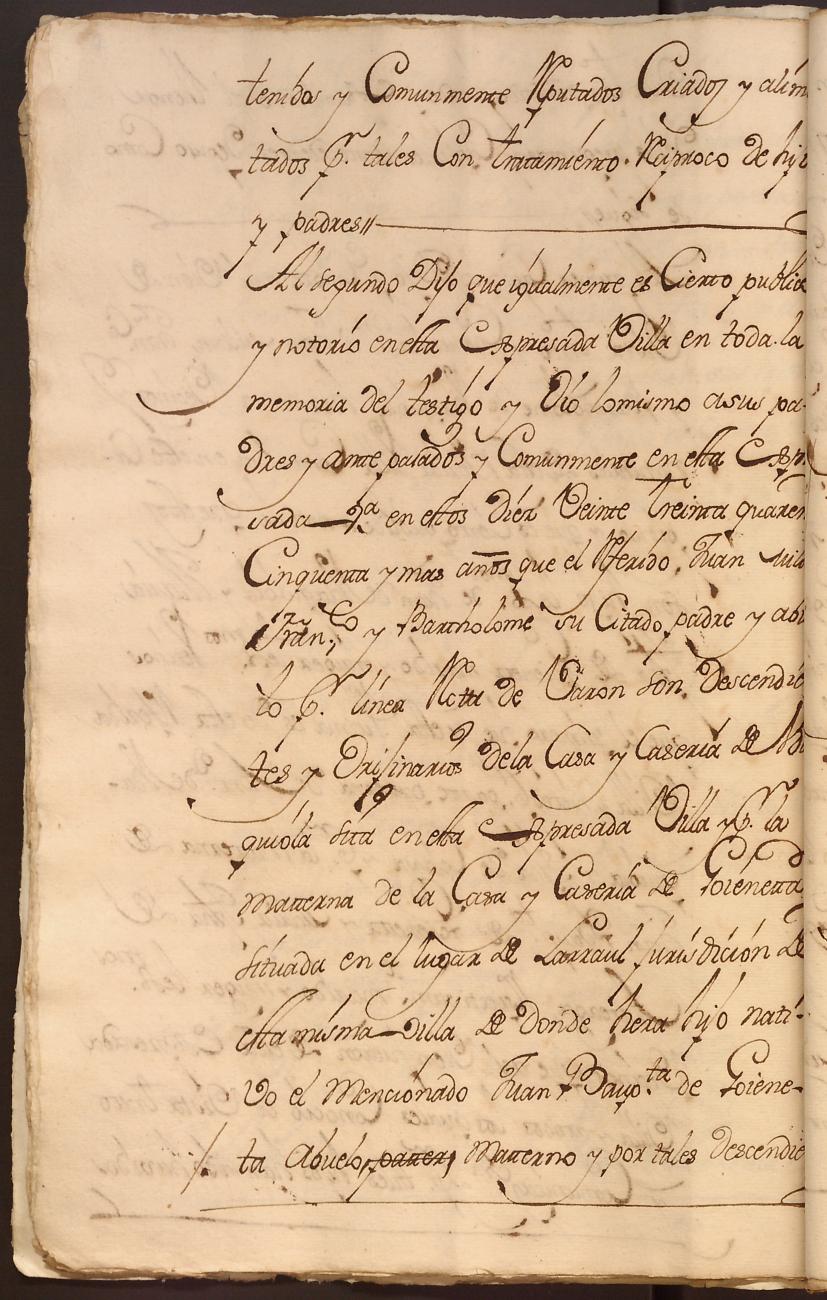 tenidos y Comunmente Rputados Criados y alim
tados Pr. tales Con tratamiento Rciproco de hijo
y padres//
Al segundo Dijo que igualmente es Cierto publico
y notorio en esta Espresada Villa en toda la
memoria del testigo y Oio lomismo asus pa-
dres y ante pasados y Comunmente en esta Espre
sada Va. en estos Diez Veinte treinta quaren
Cinquenta y mas años que el Rferido Juan
Fran.co y Bartholome su Citado padre y abue
lo Pr. linea Rcta de Varon son Descendien
tes y Orijinarios dela Casa y Caseria de
quiola sita en esta Espresada Villa y Pr. la
Materna de la Casa y Caseria de Goieneta
situada en el lugar de Larraul Jurisdicion de
esta misma Villa de donde hera hijo nati-
vo el Mencionado Juan Bauptta de Goiene-
ta Abuelo pater, Materno y por tales Descendie